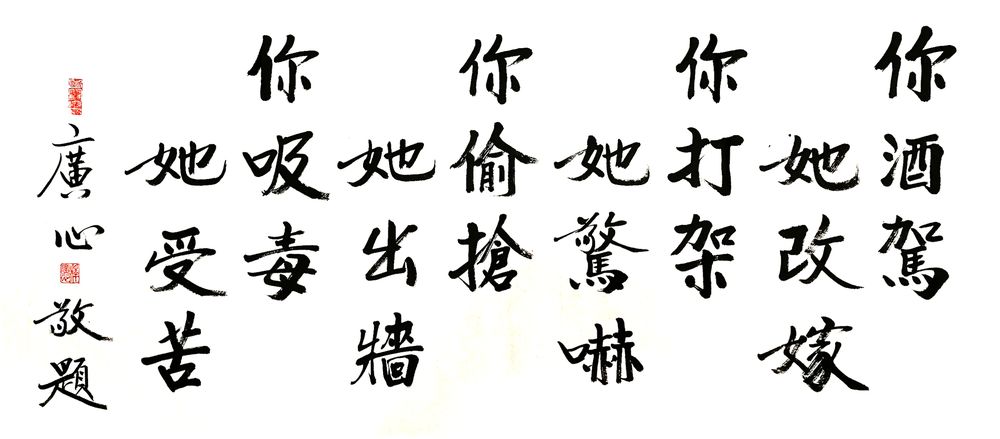 你酒駕
她改嫁
你打架
她驚嚇
你偷搶
她出牆
你吸毒
她受苦
廣心敬題